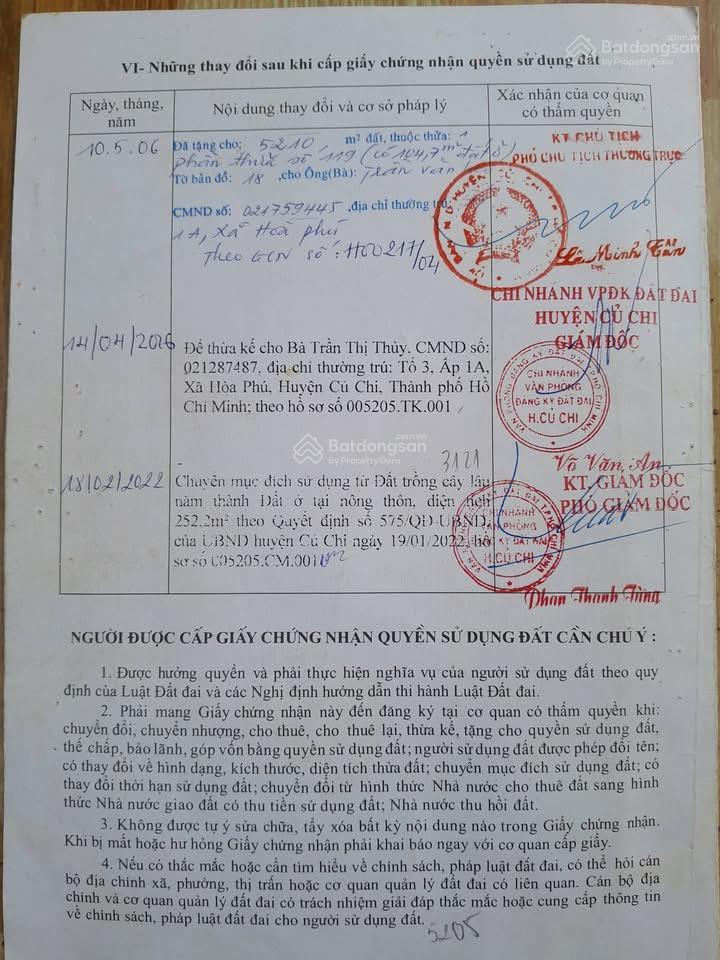 Batdongsan.com.vn
by PropertyGuru
VI- Những thay đổi sau khi cấp giấy chứng nhận quyền sử dụng đất
Ngày, tháng, năm
Nội dung thay đổi và cơ sở pháp lý
Xác nhận của cơ quan có thẩm quyền
10.5.06
Đã tặng cho: 5210 m² đất, thuộc thửa: 1
phần thửa số 119 (có 104,7m² đất ở)
Tờ bản đồ: 18, cho Ông(Bà): Trần Văn
CMND số: 021759445, địa chỉ thường trú:
1A, Xã Hoà Phú
Theo GCN số: H00217/04
KT CHỦ TỊCH
PHÓ CHỦ TỊCH THƯỜNG TRỰC
Lê Minh Tấn
14/04/2016
Để thừa kế cho Bà Trần Thị Thủy, CMND số:
021287487, địa chỉ thường trú: Tổ 3, Ấp 1A,
Xã Hòa Phú, Huyện Củ Chi, Thành phố Hồ
Chí Minh; theo hồ sơ số 005205.TK.001
CHI NHÁNH VPĐK ĐẤT ĐAI
HUYỆN CỦ CHI
GIÁM ĐỐC
CHI NHÁNH
VĂN PHÒNG
ĐĂNG KÝ ĐẤT ĐAI
H.CỦ CHI
Võ Văn An
Batdongsan.com.vn
by PropertyGuru
3121
18/02/2022
Chuyển mục đích sử dụng từ Đất trồng cây lâu
năm thành Đất ở tại nông thôn, diện tích
252.2m² theo Quyết định số 575/QĐ-UBND
của UBND huyện Củ Chi ngày 19/01/2022, hồ
sơ số 005205.CM.001
KT. GIÁM ĐỐC
PHÓ GIÁM ĐỐC
CHI NHÁNH
VĂN PHÒNG
ĐĂNG KÝ ĐẤT ĐAI
H.CỦ CHI
Phan Thanh Tùng
NGƯỜI ĐƯỢC CẤP GIẤY CHỨNG NHẬN QUYỀN SỬ DỤNG ĐẤT CẦN CHÚ Ý :
1. Được hưởng quyền và phải thực hiện nghĩa vụ của người sử dụng đất theo quy
định của Luật Đất đai và các Nghị định hướng dẫn thi hành Luật Đất đai.
2. Phải mang Giấy chứng nhận này đến đăng ký tại cơ quan có thẩm quyền khi:
chuyển đổi, chuyển nhượng, cho thuê, cho thuê lại, thừa kế, tặng cho quyền sử dụng đất,
thế chấp, bảo lãnh, góp vốn bằng quyền sử dụng đất; người sử dụng đất được phép đổi tên;
có thay đổi về hình dạng, kích thước, diện tích thửa đất; chuyển mục đích sử dụng đất; có
thay đổi thời hạn sử dụng đất; chuyển đổi từ hình thức Nhà nước cho thuê đất sang hình
thức Nhà nước giao đất có thu tiền sử dụng đất; Nhà nước thu hồi đất.
3. Không được tự ý sửa chữa, tẩy xóa bất kỳ nội dung nào trong Giấy chứng nhận.
Khi bị mất hoặc hư hỏng Giấy chứng nhận phải khai báo ngay với cơ quan cấp giấy.
4. Nếu có thắc mắc hoặc cần tìm hiểu về chính sách, pháp luật đất đai, có thể hỏi cán
bộ địa chính xã, phường, thị trấn hoặc cơ quan quản lý đất đai có liên quan. Cán bộ địa
chính và cơ quan quản lý đất đai có trách nhiệm giải đáp thắc mắc hoặc cung cấp thông tin
về chính sách, pháp luật đất đai cho người sử dụng đất.
5205